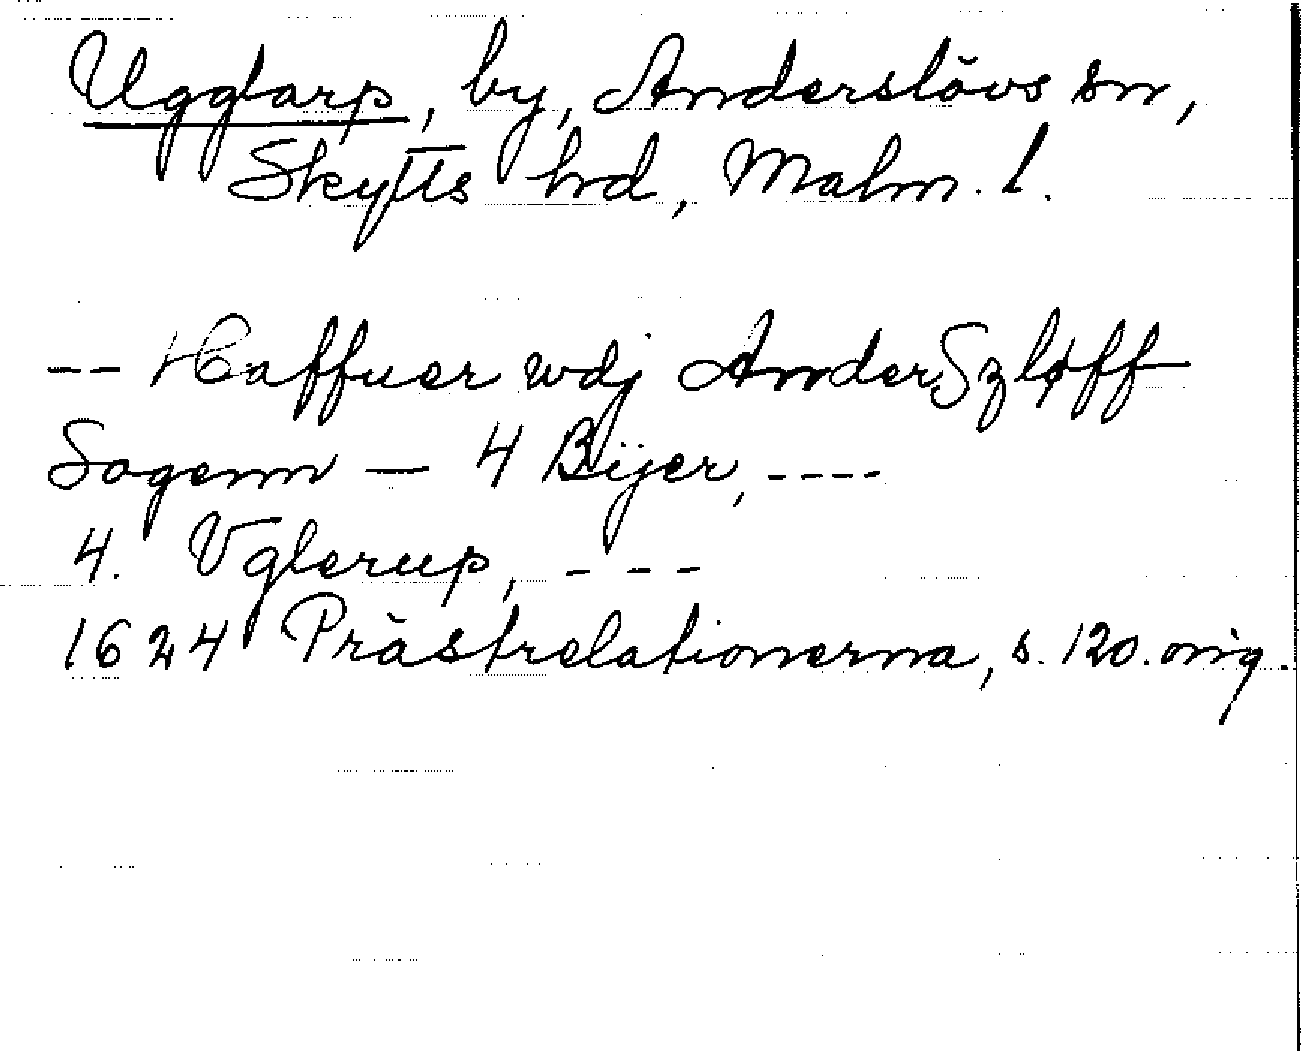 Ugglarp, by, Anderslövs sn,
Skytts hrd, Malm. l.
-- Haffuer wdj AnderSzløff
Sogenn — 4 Bÿer, ----
4. Vglerup, ---
1624 Prästrelationerna, s. 120. orig.